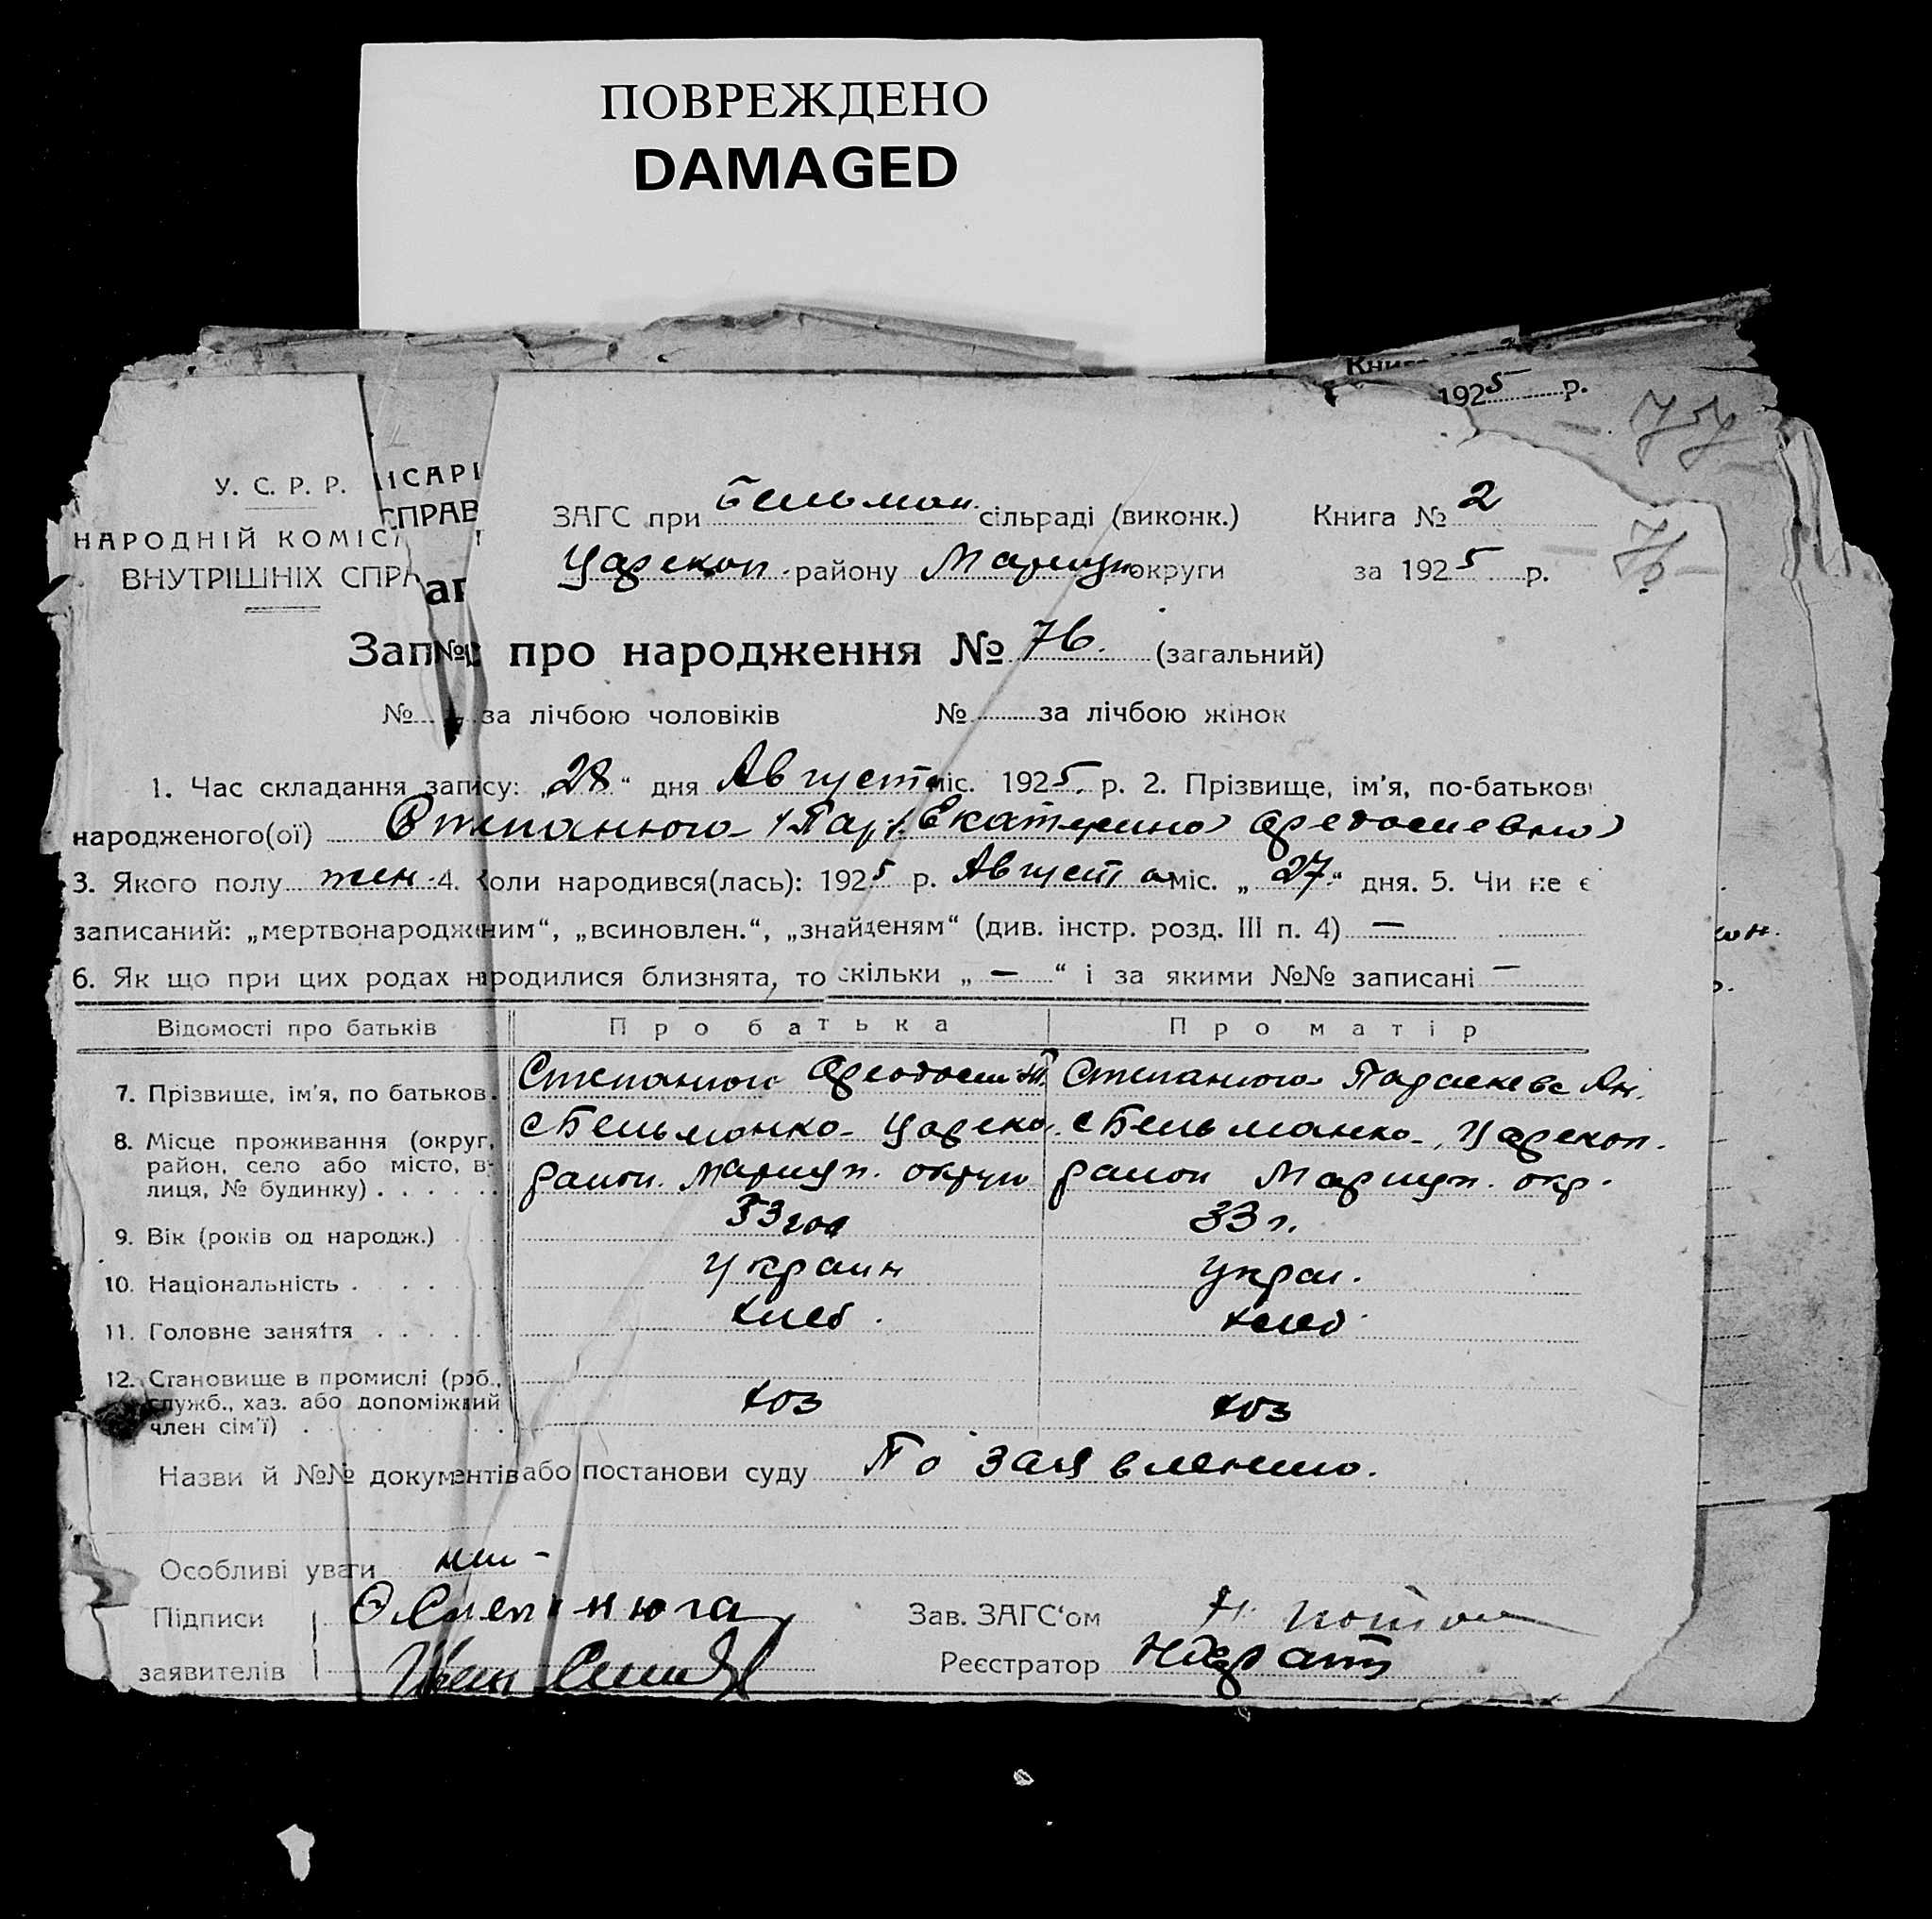 ПОВРЕЖДЕНО
DAMAGED
Книга
1925 р.
75
У. С. Р. Р.
НАРОДНІЙ КОМІС
ВНУТРІШНІХ СПР
ІСАРІ
СПРАВ
ЗАГС при Бельман. сільраді (виконк.) Книга № 2
Царекон. району Мариуп округи за 1925 р.
76
Запис про народження № 76. (загальний)
№ за лічбою чоловіків № за лічбою жінок
1. Час складання запису: „28“ дня Августа міс. 1925 р. 2. Прізвище, ім'я, по-батькові
народженого(ої) Степанюга Екатерина Федосиевна
3. Якого полу жен. 4. Коли народився(лась): 1925 р. Августа міс. „27“ дня. 5. Чи не є
записаний: „мертвонародженим“, „всиновлен.“, „знайденям“ (див. інстр. розд. III п. 4) —
6. Як що при цих родах народилися близнята, то скільки „ — “ і за якими №№ записані —
Відомості про батьків Про батька Про матір
7. Прізвище, ім'я, по батьков. Степанюга Феодосий Степанюга Параскева Ан.
8. Місце проживання (округ, район, село або місто, в- лиця, № будинку) с Бельманка Царекон. с Бельманка, Царекон.
район. Мариуп. округи район Мариуп. окр.
9. Вік (років од народж.) 33 год 33 г.
10. Національність Украин Украи.
11. Головне заняття хлеб. хлеб.
12. Становище в промислі (роб., служб., хаз. або допоміжний член сім'ї) хоз хоз
Назви й №№ документів або постанови суду По заявлению.
Особливі уваги нет -
Підписи Ѳ. Степанюга Зав. ЗАГС'ом
заявителів Реєстратор